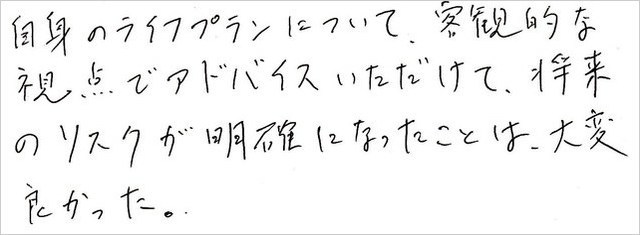 自身のライフプランについて、客観的な
視点でアドバイスいただけて、将来
のリスクが明確になったことは、大変
良かった。